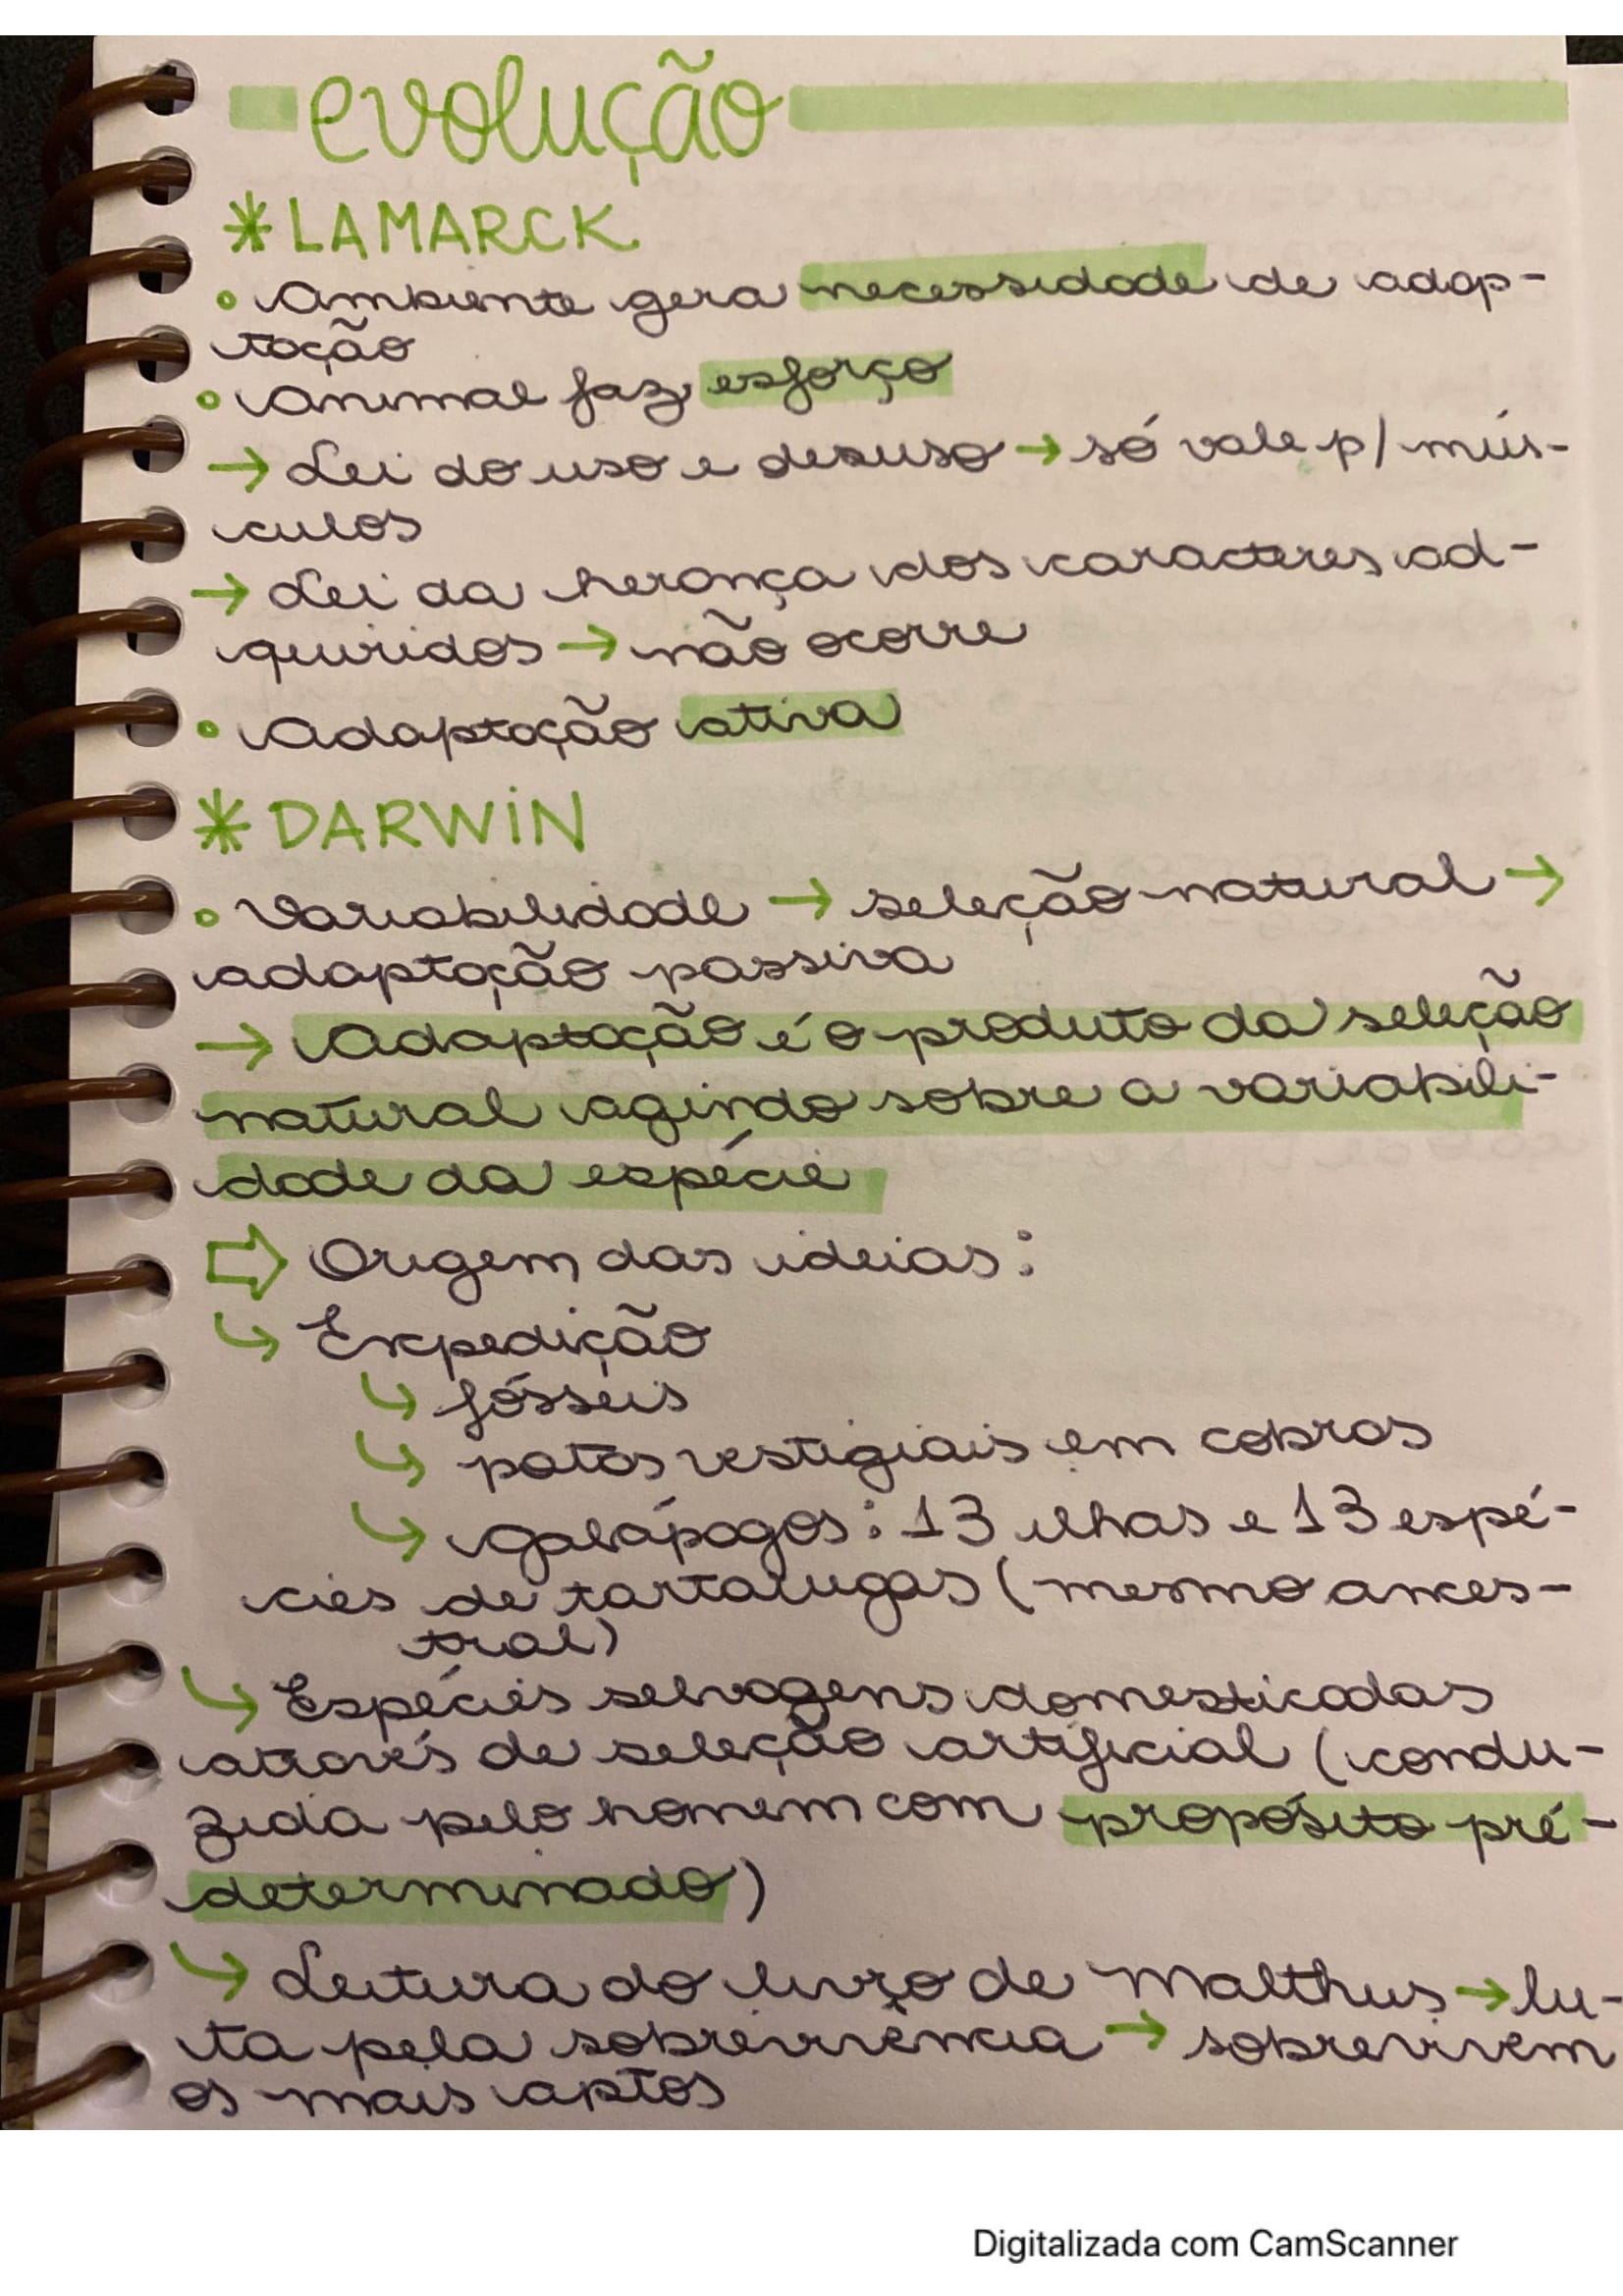 evolução
* LAMARCK
• Ambiente gera necessidade de adap-
tação
• Animal faz esforço
→ Lei do uso e desuso → só vale p/ mús-
culos
→ Lei da herança dos caracteres ad-
quiridos → não ocorre
• Adaptação ativa
* DARWIN
• Variabilidade → seleção natural →
adaptação passiva
→ Adaptação é o produto da seleção
natural agindo sobre a variabili-
dade da espécie
⇨ Origem das ideias:
↳ Expedição
↳ fósseis
↳ patas vestigiais em cobras
↳ galápagos: 13 ilhas e 13 espé-
cies de tartarugas (mesmo ances-
tral)
↳ Espécies selvagens domesticadas
através de seleção artificial (condu-
zida pelo homem com propósito pré-
determinado)
↳ Leitura do livro de Malthus → lu-
ta pela sobrevivência → sobrevivem
os mais aptos
Digitalizada com CamScanner